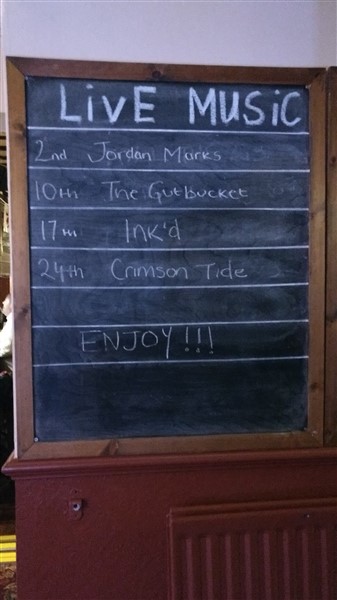 LiVE MUSiC
2nd Jordan Marks
10th The Gutbucket
17th Ink'd
24th Crimson Tide
ENJOY !!!